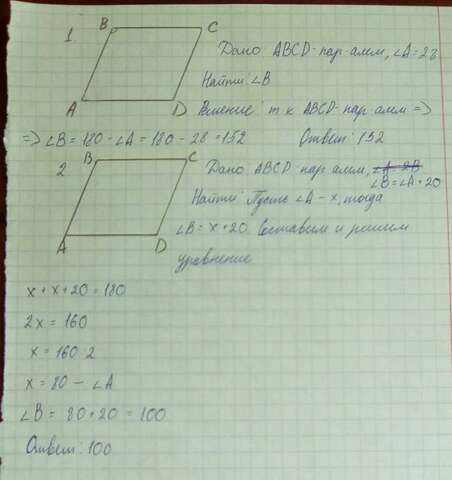 1. B C
Дано ABCD-пар-амм, ∠A=28
Найти: ∠B
A D Решение: т к ABCD-пар амм =>
=> ∠B = 180 - ∠A = 180 - 28 = 152 Ответ: 152
2 B C Дано ABCD-пар амм, ∠A = 2B
∠B = ∠A + 20
Найти: Пусть ∠A - x, тогда
∠B = x + 20. Составим и решим
A D уравнение
x + x + 20 = 180
2x = 160
x = 160 2
x = 80 - ∠A
∠B = 80 + 20 = 100
Ответ: 100